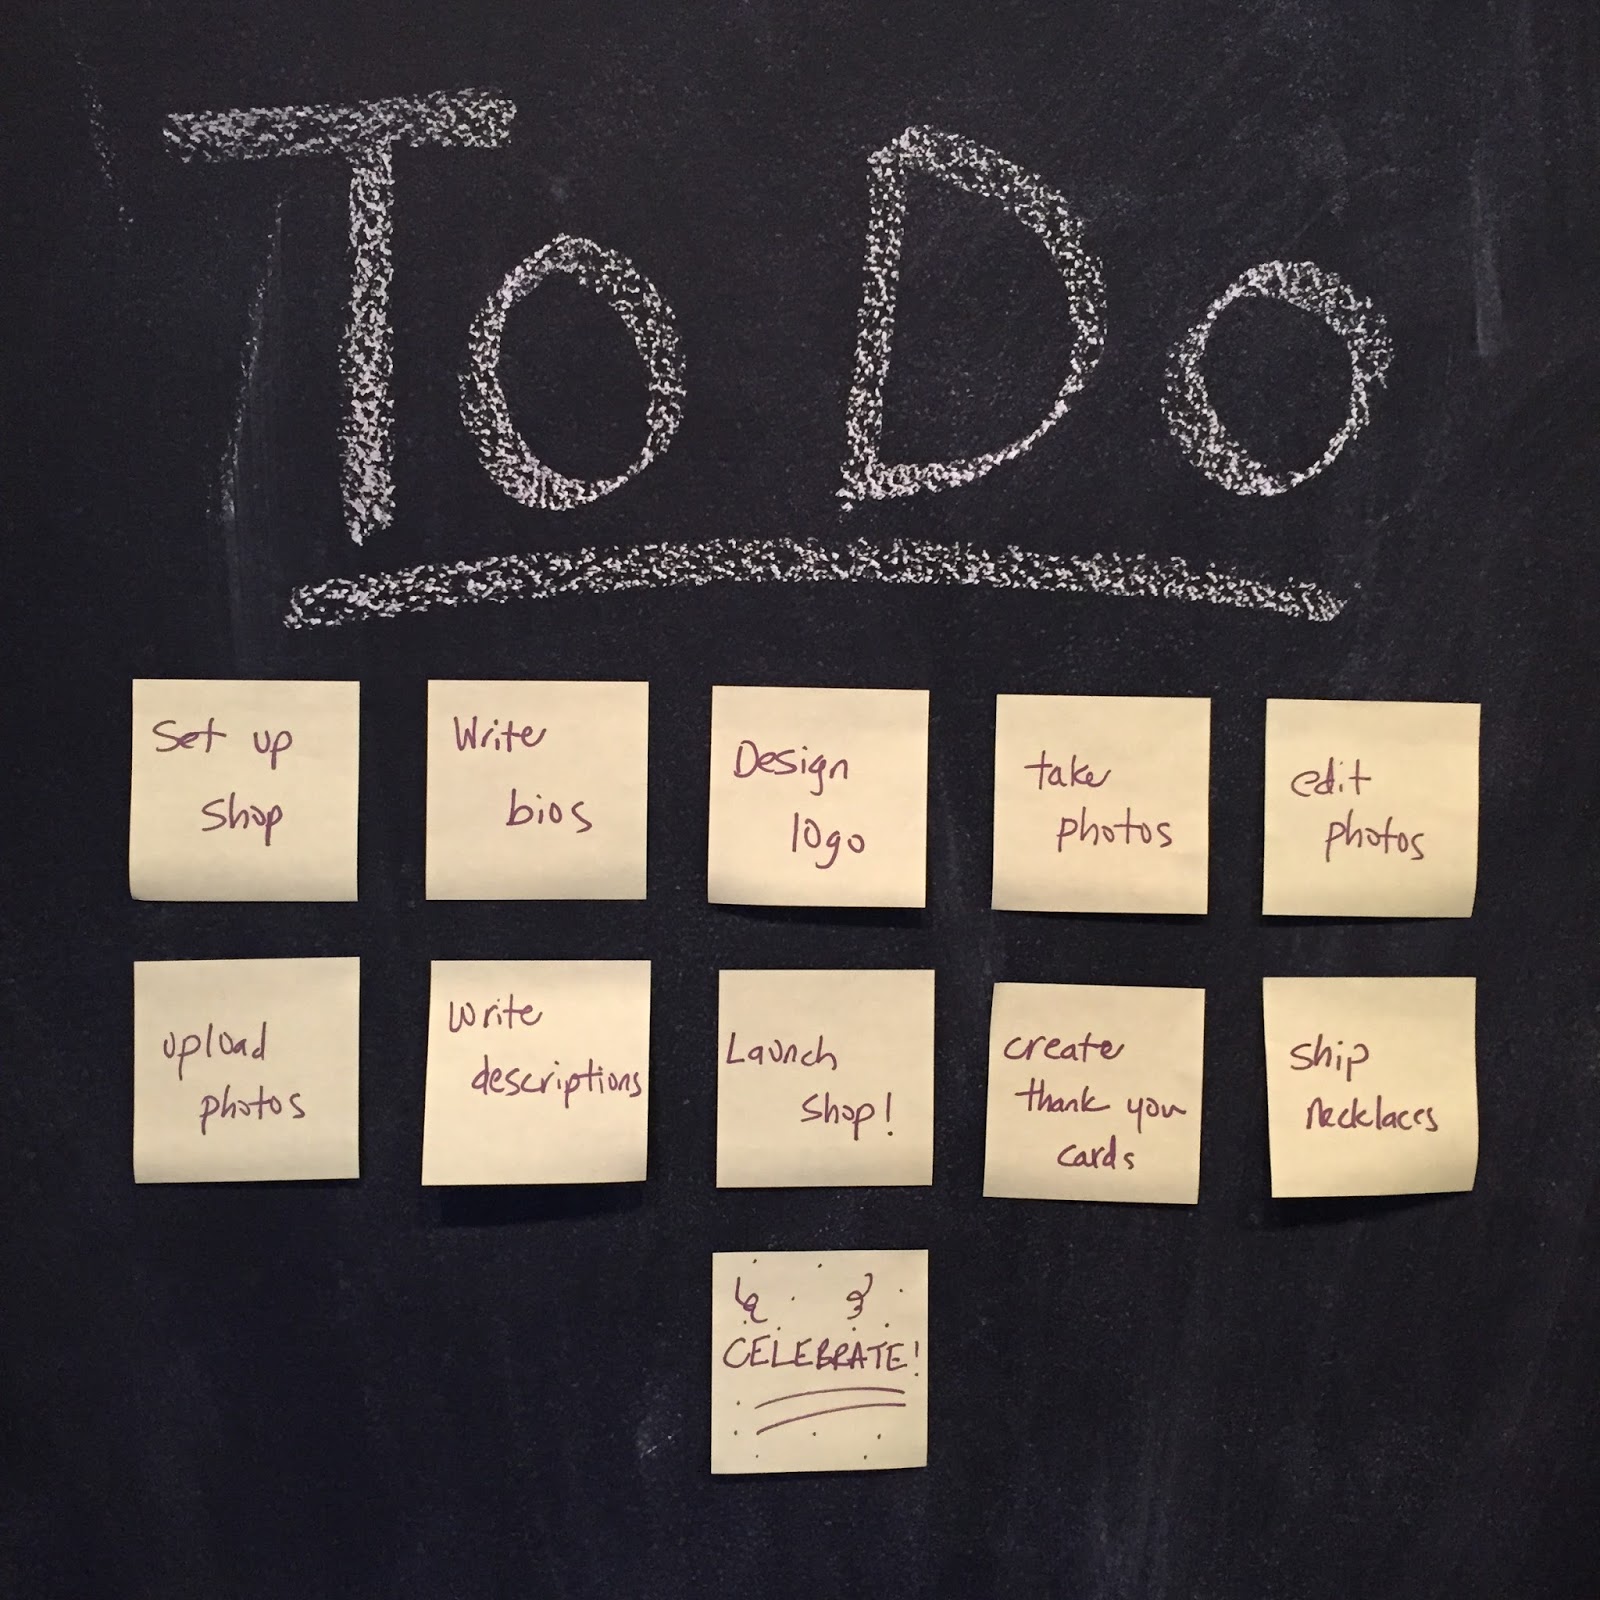 To Do
Set up
shop
Write
bios
Design
logo
take
photos
edit
photos
upload
photos
Write
descriptions
Launch
shop!
create
thank you
cards
ship
necklaces
CELEBRATE!